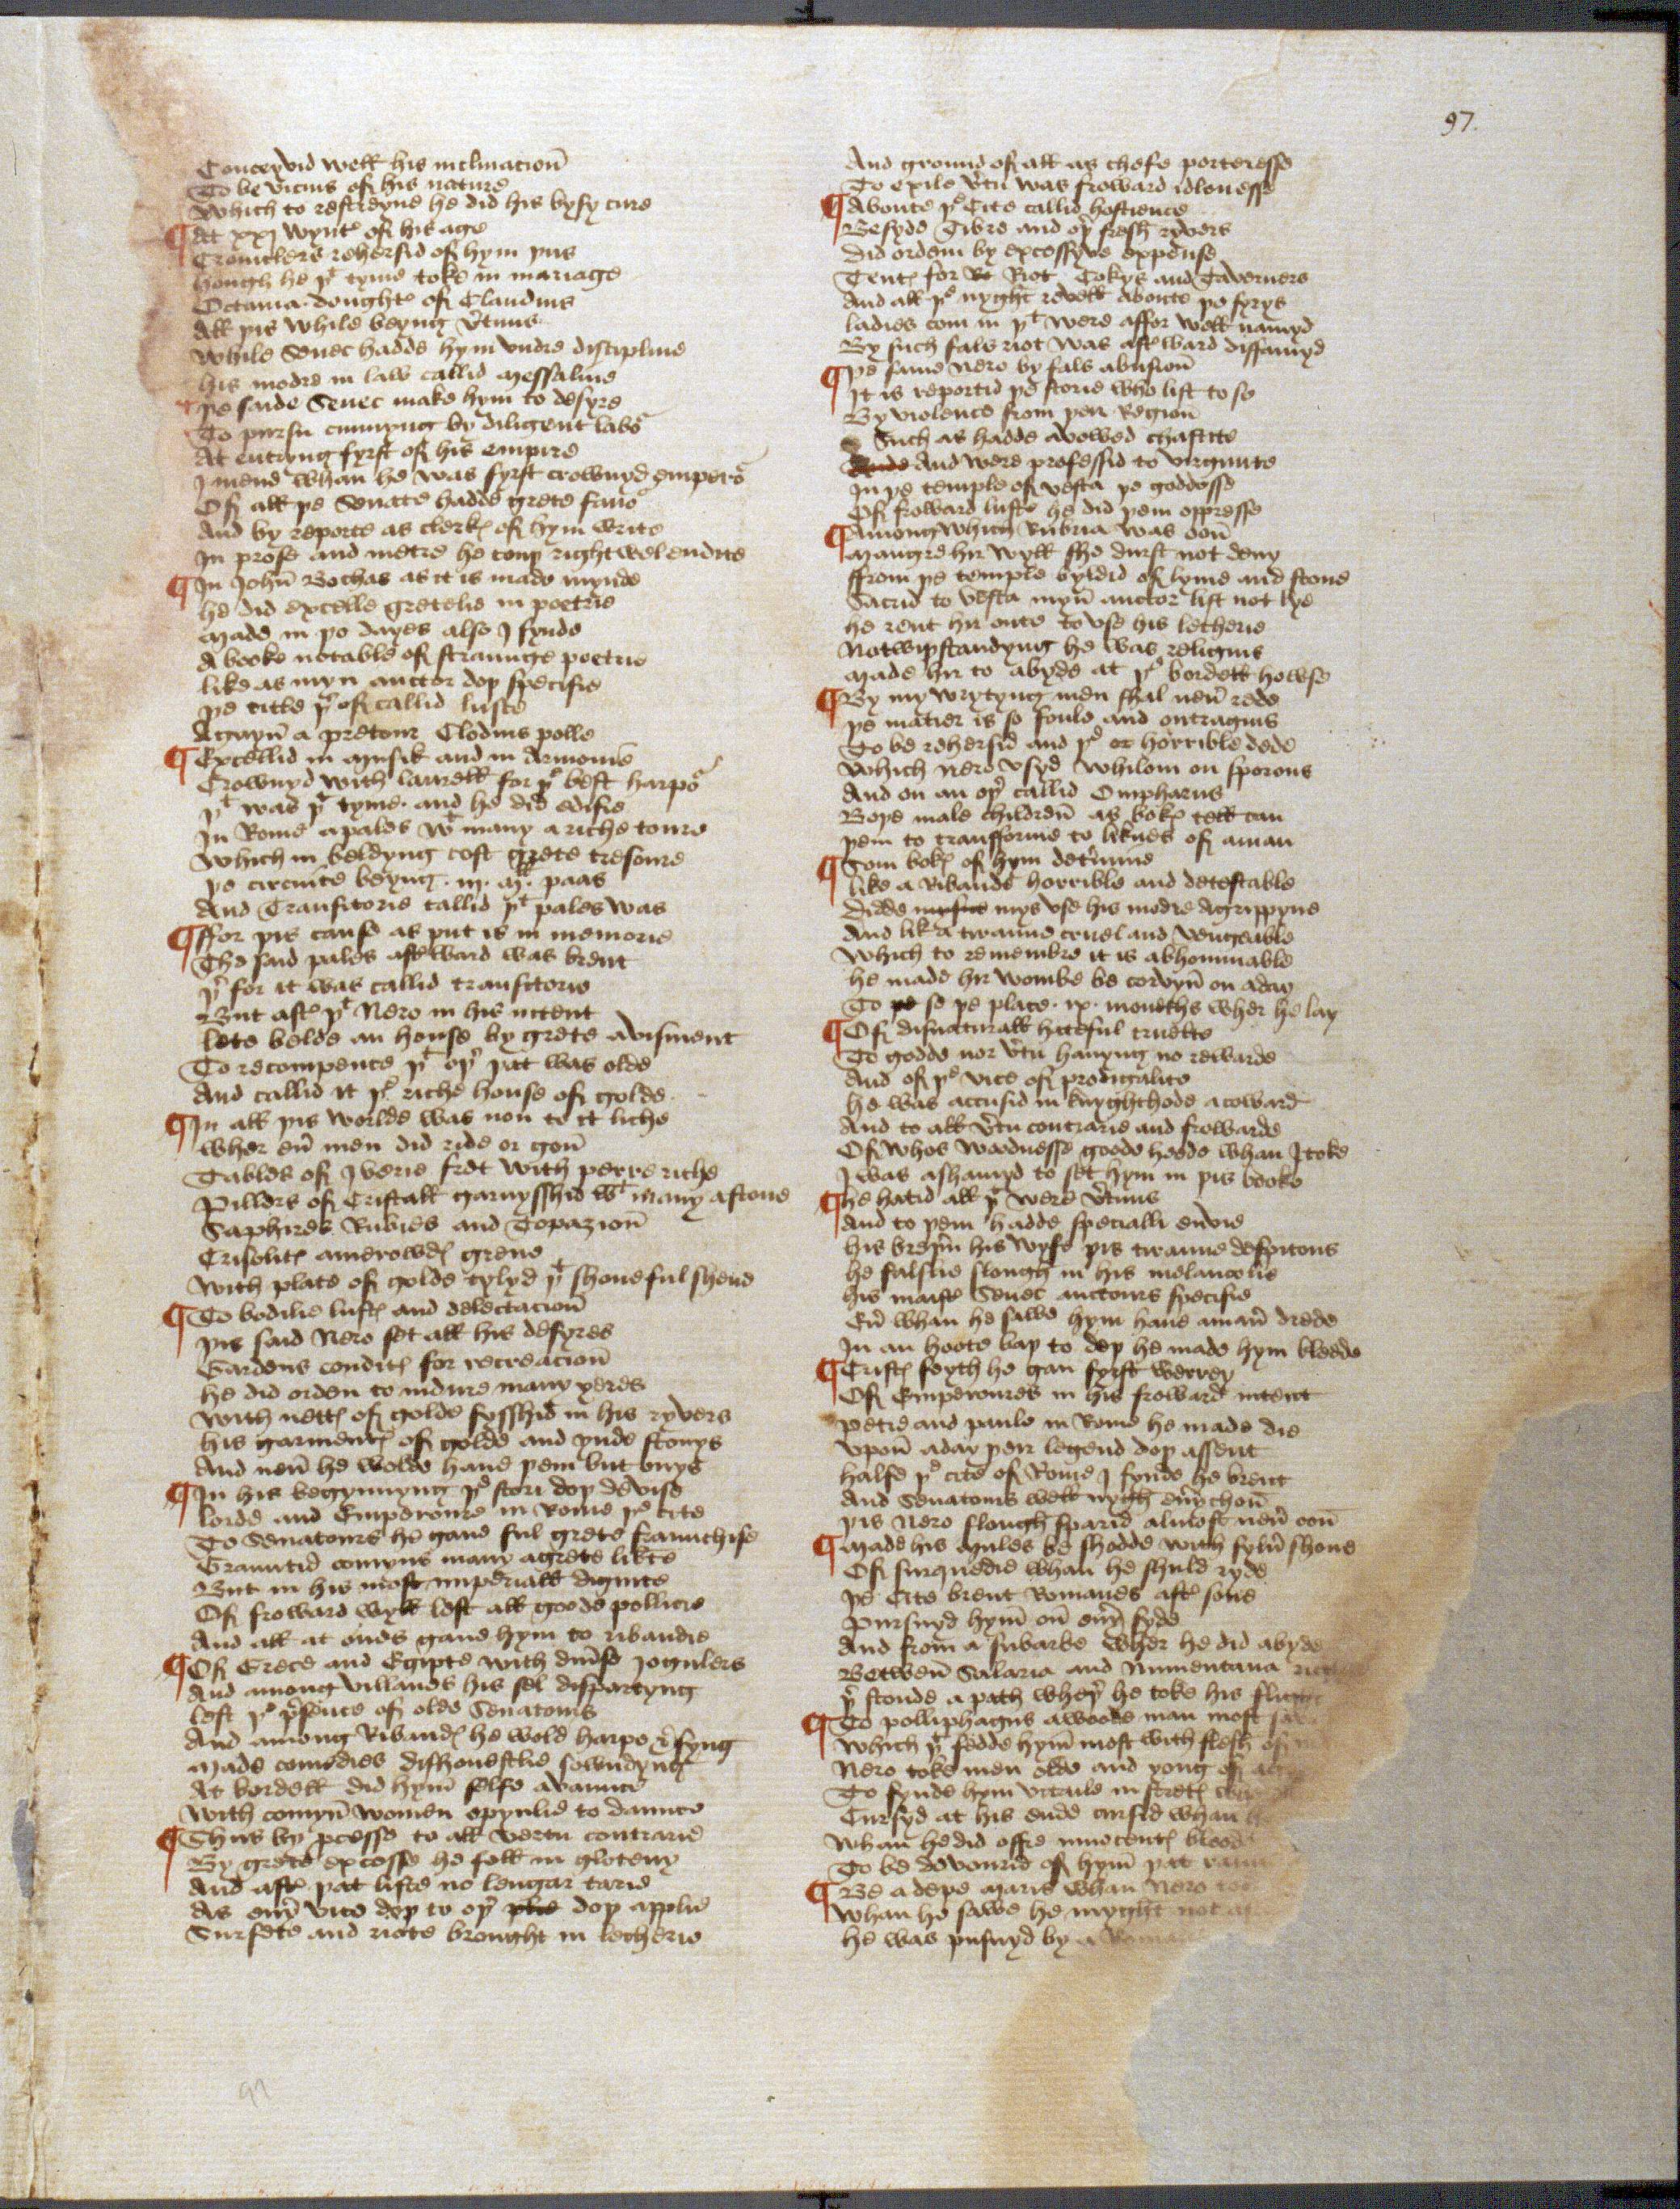 97.
Conceyvid well his inclinacioñ
To be vicius of his nature
Which to restreyne he did his bysy cure
¶ At xxj wynt͛ of his age
Croniclers rehersid of hym þus
hough he þᵗ tyme toke in mariage
Octauia dought͛ of Claudius
All þis while beyng v͛tuus
While Senec hadde hym undre discipline
his modre in law callid Messaline
¶ þe saide Senec make hym to desyre
To pursu cunnyng by diligent labo͛
At entryng fyrst of his empire
I mene whan he was fyrst crownyd empero͛
Of all þe Senate hadde grete fauo͛
And by reporte as clerk͛ of hym write
In prose and metre he couþ right wel endite
¶ In Johñ Bochas as it is made mynde
he did excelle gretelie in poetrie
Made in þo dayes also I fynde
A booke notable of straunge poetrie
like as myn auctor doþ specifie
þe title þ͛ of callid luste
Agayñ a pretour Clodius polle
¶ Excellid in musik and in Armonie
Crownyd with laurell for þᵉ best harpo͛
þᵗ was þᵗ tyme. and he did edifie
In Rome a pales wᵗ many a riche toure
Which in beldyng cost grete tresoure
þe circuite beyng. iij. Mˡ. paas
And Transitorie callid þᵗ pales was
¶ ffor þis cause as put is in memorie
The said pales aft͛ward was brent
þ͛ for it was callid transitorie
But aft͛ þᵗ Nero in his intent
lete belde an house by grete avisment
To recompence þᵗ oþ͛ þat was olde
And callid it þᵉ riche house of golde
¶ In all þis worlde was non to it liche
wher eu͛ men did ride or goñ
Tables of Iverie fret with perre riche
Pillers of Cristall garnysshid wᵗ many a stone
Saphires Rubies and Topazioñ
Crisolit͛ amerowd͛ grene
With plate of golde tylyd þᵗ shone ful shene
¶ To bodilie lust͛ and delectacioñ
þis said Nero set all his desyres
Gardens condit͛ for recreacioñ
he did orden to indure many yeres
With nett͛ of golde fysshid in his ryvers
his garment͛ of golde and ynde stonys
And neu͛ he wolde haue þem but onys
¶ In his begynnyng þᵉ stori doþ devise
lorde and Emperoure in Rome þᵉ cite
To Senatours he gaue ful grete fraunchise
Grauntid comyns many a grete libte
But in his most imperiall dignite
Of froward wyll left all goode pollicie
And all at onis gaue hym to ribaudie
¶ Of Grece and Egipte with diu͛se Jogulers
And among villaus his sel disportyng
left þᵉ p͛sence of olde Senatours
And among Ribaud͛ he wold harpe & syng
Made comedies dishonestlie sowndyng
At bordell did hym selfe avaunce
With comyñ women opynlie to daunce
¶ Thus by p͛cesse to all vertu contrarie
By grete excesse he fell in gloteny
And aft͛ þat liste no lengar tarie
As eu͛y vice doþ to oþ͛ doþ applie
Surfete and riote brought in lecherie
And ground of all as chefe porteresse
To exile v͛tu was froward idlenesse
¶ Aboute þᵉ Cite callid hostience
Besyde Tibre and oþ͛ fresh ryvers
Did ordein by excessyve expense
Tent͛ for Riot Cokys and Taverners
And all þᵉ nyght revell aboute þe fyrys
ladies com in þᵗ were affor well namyd
By such fals riot was aft͛ward diffamyd
¶ þe same Nero by fals abusioñ
It is reportid þe storie who list to se
By violence from þeir Region
Such as hadde avowed chastite
And were professid to virginite
In þe temple of vesta þe goddesse
Of froward luste he did þem oppresse
¶ Among which Rubria was ooñ
Maugre hir wyll she durst not deny
ffrom þe temple byldid of lyme and stone
Sacrid to vesta myñ auctor list not lye
he rent hir oute to use his lecherie
Notwiþstandyng he was religius
Made hir to abyde at þᵉ bordell howse
¶ By my wrytyng men shal neu͛ rede
þe matier is so foule and outragius
To be rehersid and þᵉ or horrible dede
Which Nero vsyd whilom on sporous
And on an oþ͛ callid Ompharus
Boþe male childreñ as bok͛ tell can
þem to transforme to liknes of a man
¶ Som bok͛ of hym det͛mine
like a Ribaude horrible and detestable
Didde mys use his modre Agrippyne
And lik a tiraune cruel and vengeable
Which to remembre it is abhominable
he made hir wombe be corvyñ on a day
To se þe place. ix. moneths wher he lay
¶ Of disnaturall hateful cruelte
To godde nor v͛tu hauyng no rewarde
And of þᵉ vice of prodigalite
he was accusid in knyghthode a coward
And to all v͛tu contrarie and frowarde
Of whos woodnesse goode heede whan I toke
I was ashamyd to set hym in þis booke
¶ he hatid all þᵗ were v͛tuus
And to þem hadde specialli envie
his breþ͛n his wyfe þis tiraune despitous
he falslie slough in his melancolie
his maist͛ Senec auctours specifie
Eu͛ whan he sawe hym haue a man͛ drede
In an hoote baþ to deþ he made hym bleede
¶ Crist͛ feyth he gan fyrst werrey
Of Emperoures in his froward intent
Petre and paule in Rome he made die
vpoñ a day þeir legend doþ assent
halfe þᵉ cite of Rome I fynde he brent
And Senatours well nygh eu͛ychoñ
þis Nero slough sparid almost neu͛ ooñ
¶ Made his Mules be shodde with sylu͛ shone
Of surquedie whan he shuld ryde
þe Cite brent Romanes aft͛ sone
Pursuyd hym oñ eu͛y syde
And from a subarbe wher he did abyde
Betweñ Salaria and Numentana
þ͛ stonde a path wheþ͛ he toke his
¶ To polliphagus a woode man most
Which þᵗ fedde hym most with flesh of
Nero toke men olde and yong of
To fynde hym vitaile in
Cursyd at his ende cursid whan
Whan he did offre innocent͛ blood
To be devourid of hym þat
¶ Be a depe Maris whan Nero
Whan he sawe he myght not
he was pursuyd by a
97